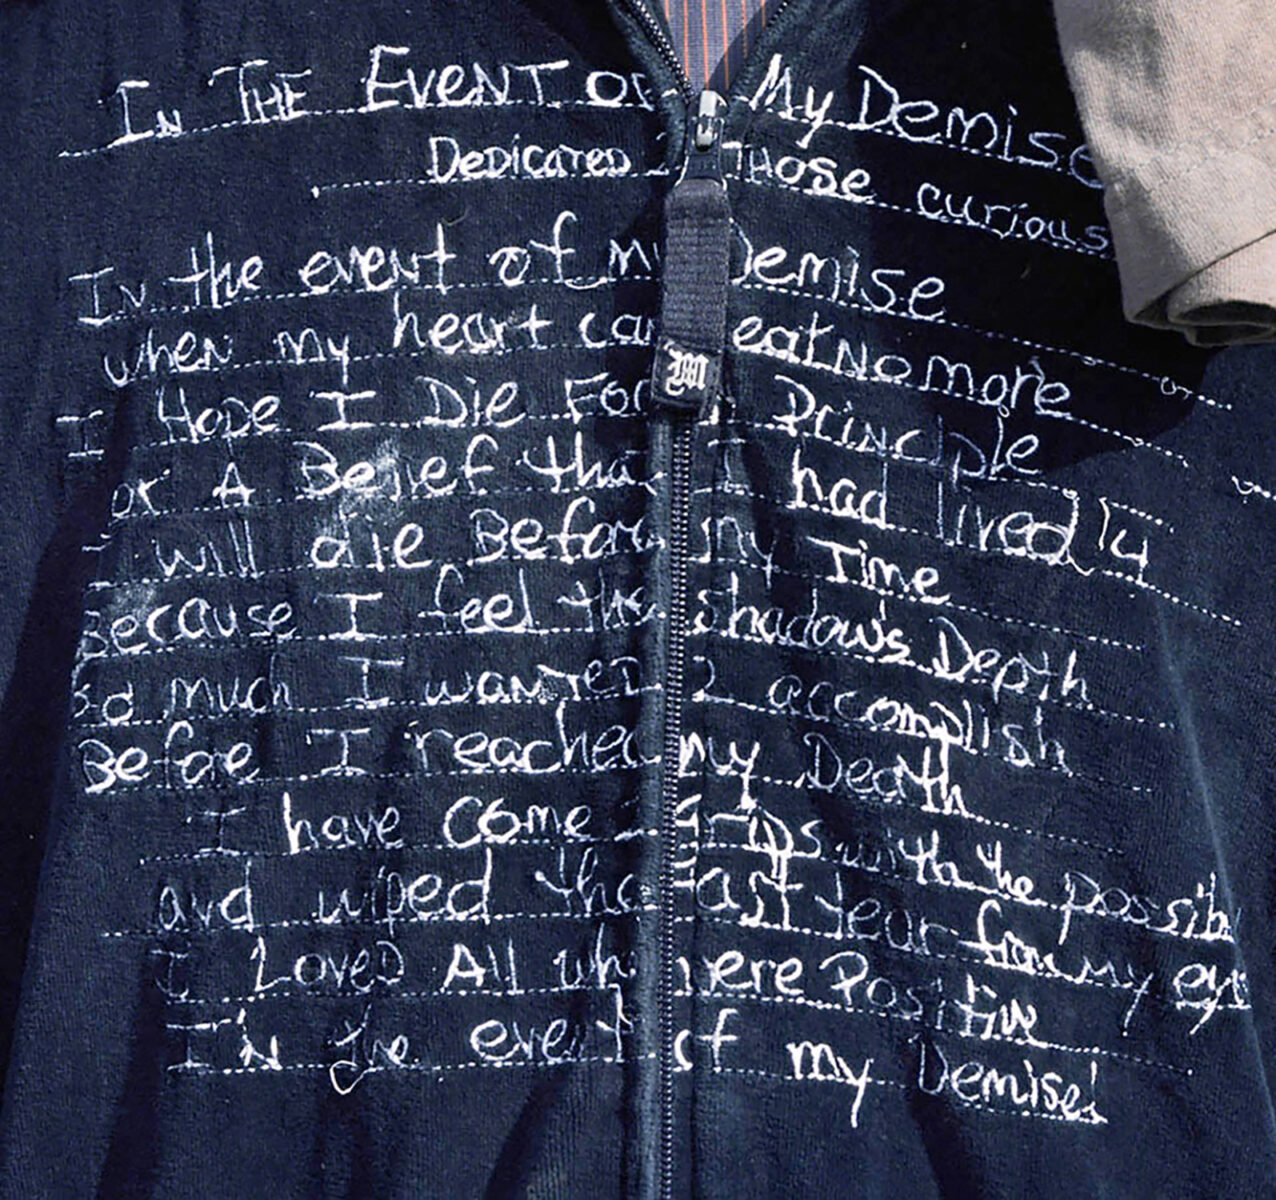 IN THE EVENT OF MY DEMISE
DEDICATED 2 THOSE CURIOUS
IN the event of my Demise
when my heart can Beat No more
I Hope I Die For A Principle
or A Belief that I had lived 14
I will die Before my Time
Because I feel the shadow's Depth
so much I wanted 2 accomplish
Before I reached my Death
I have come 2 Grips with the possib
and wiped the last tear from my eyes
I Loved All who were Positive
In the event of my Demise!